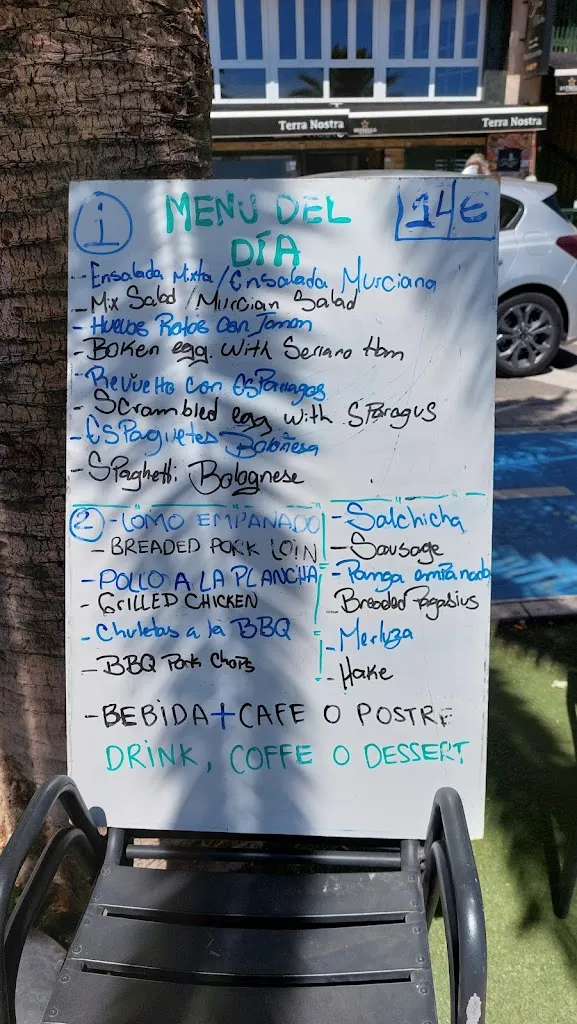 Terra Nostra
Terra Nostra
1 MENU DEL DÍA 14€
- Ensalada Mixta / Ensalada Murciana
- Mix Salad / Murcian Salad
- Huevos Rotos Con Jamon
- Boken egg. with Serrano Ham
- Revuelto con Esparragos
- Scrambled egg with SParagus
- ESPaguetes Boloñesa
- SPaghetti Bolognese
2 - LOMO EMPANADO
- BREADED PORK LOIN
- POLLO A LA PLANCHA
- GRILLED CHICKEN
- Chuletas a la BBQ
- BBQ Pork Chops
- Salchicha
- Sausage
- Panga empanado
Breaded Pagasius
- Merluza
- Hake
- BEBIDA + CAFE O POSTRE
DRINK, COFFE O DESSERT